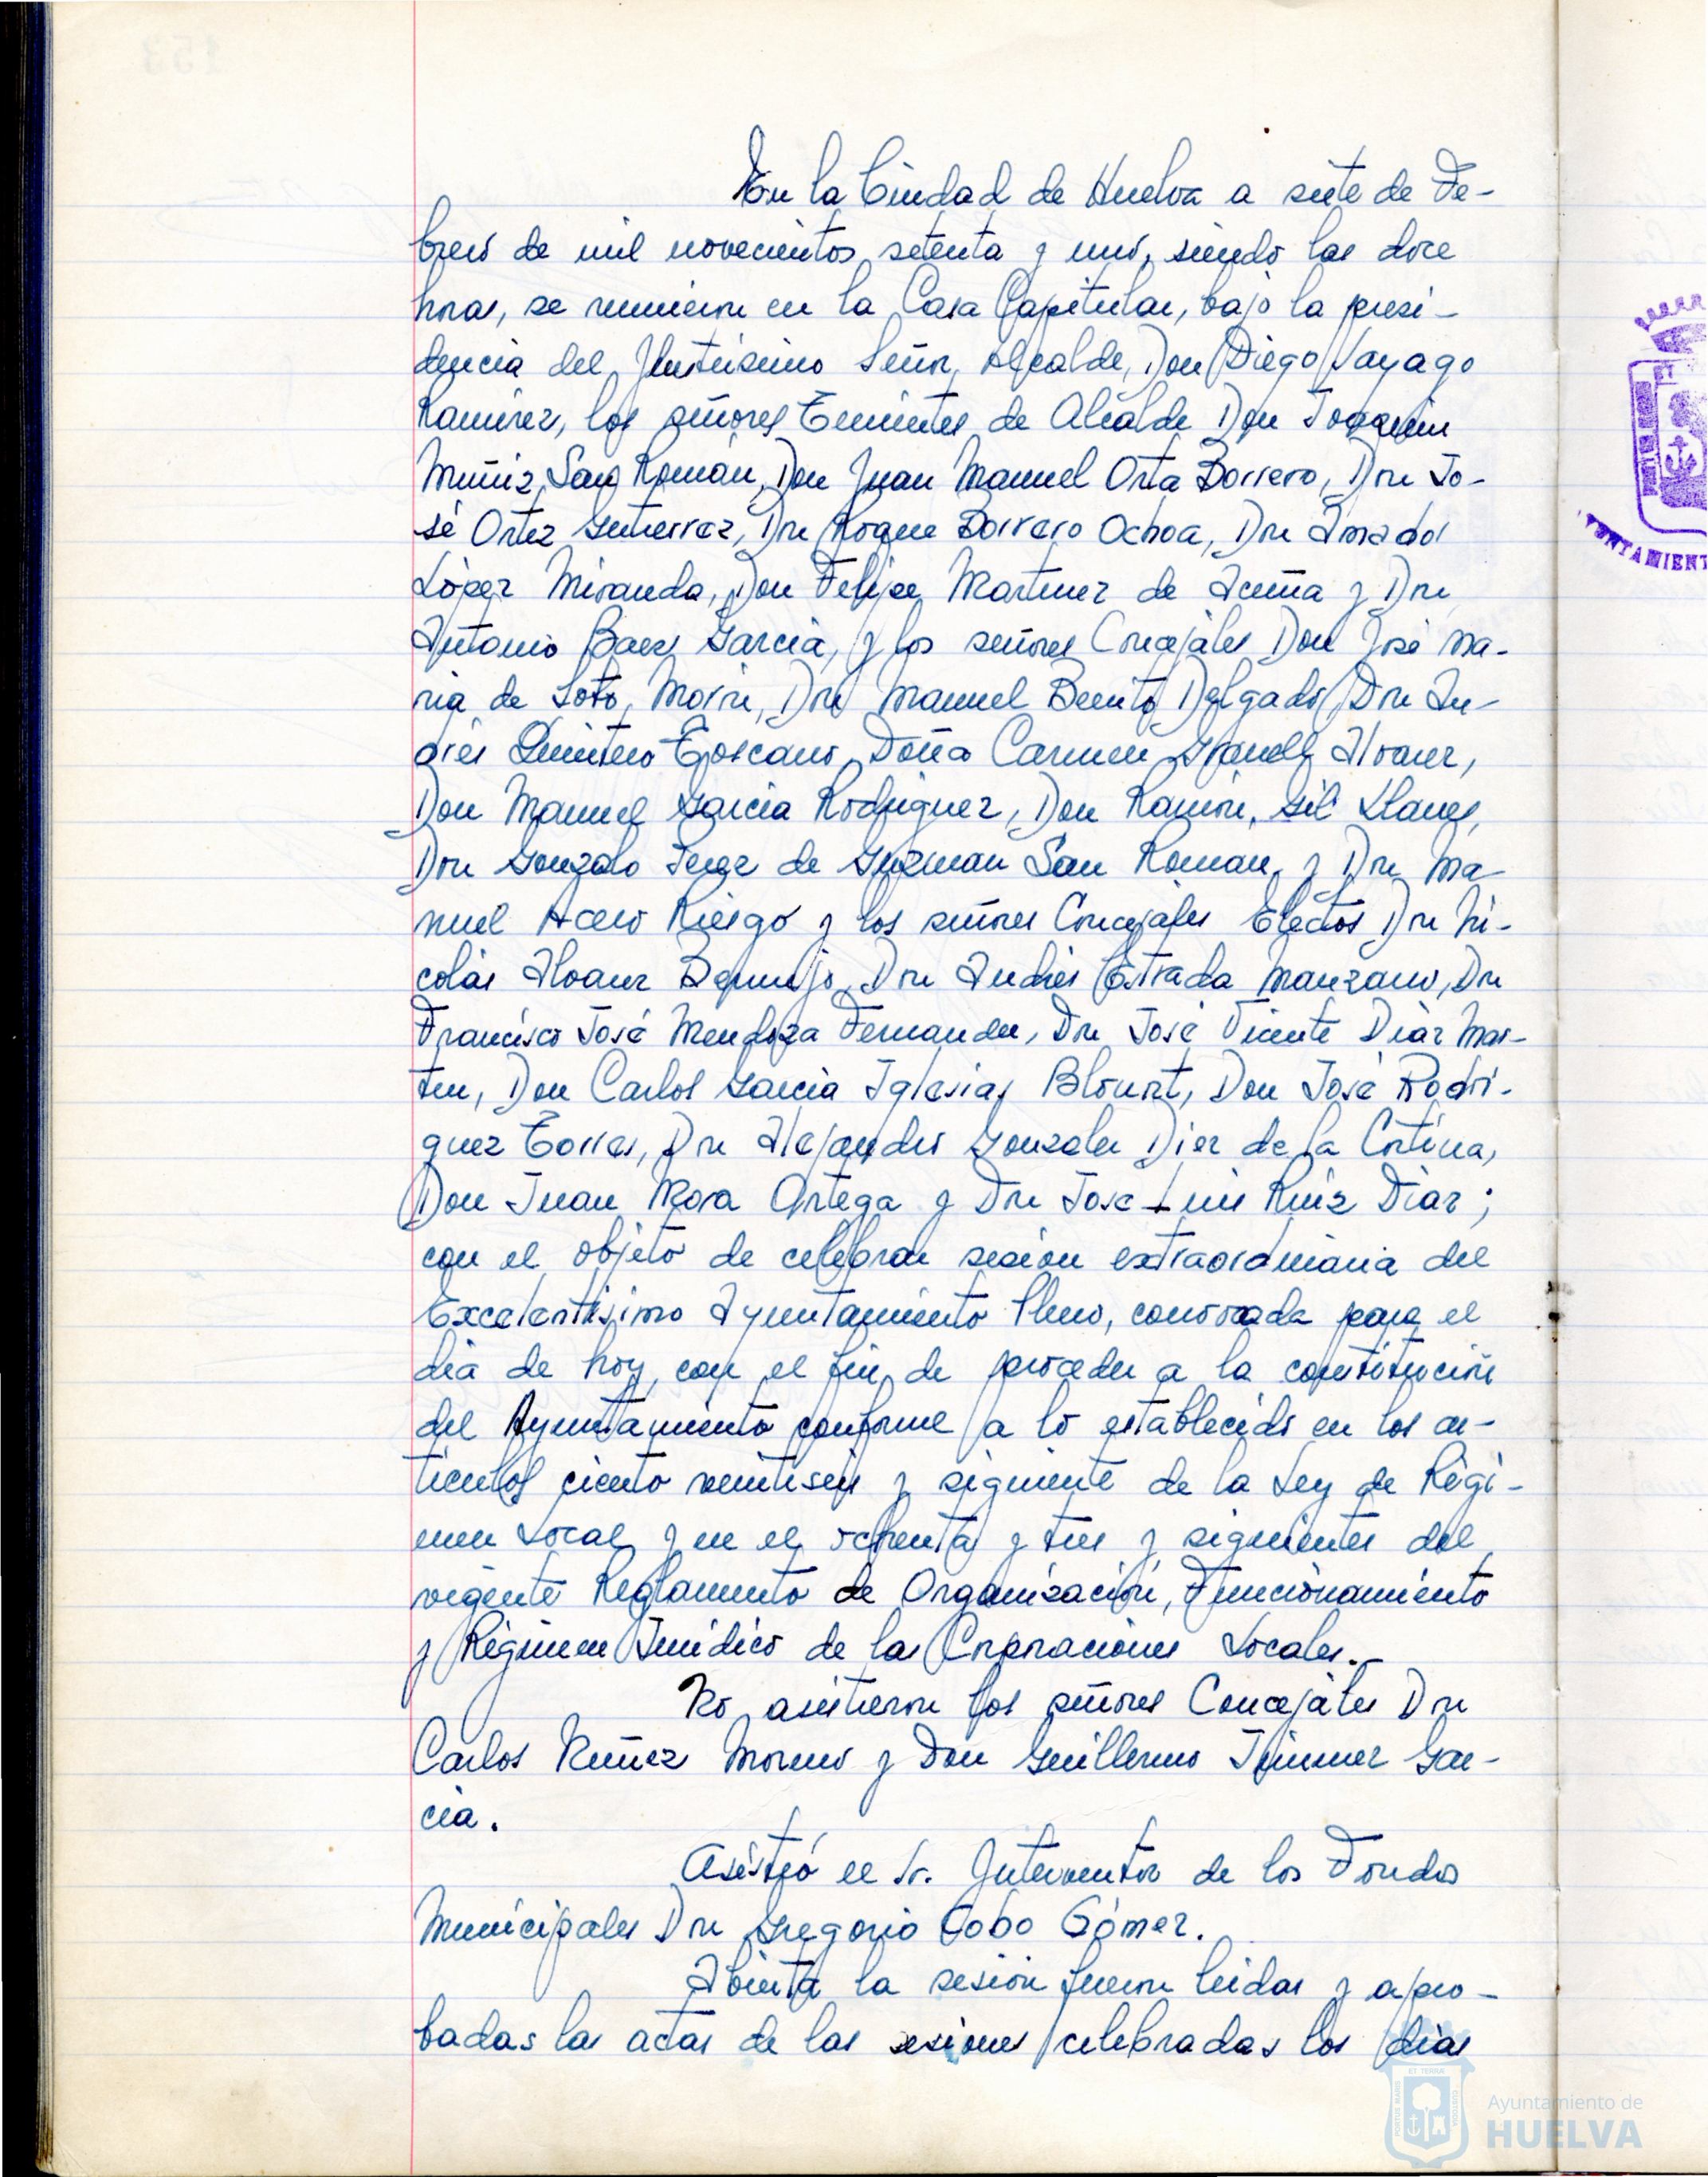 En la Ciudad de Huelva a siete de Fe-
brero de mil novecientos setenta y uno, siendo las doce
horas, se reunieron en la Casa Capitular, bajo la presi-
dencia del Ilustrísimo Señor Alcalde, Don Diego Sayago
Ramírez, los señores Tenientes de Alcalde Don Joaquin
Muñiz San Román, Don Juan Manuel Orta Borrero, Don Jo-
sé Ortiz Gutierrez, Don Roque Borrero Ochoa, Don Amador
López Miranda, Don Felipe Martinez de Acuña y Don
Antonio Baez García, y los señores Concejales Don José Ma-
ria de Soto Morón, Don Manuel Benito Delgado, Don An-
drés Quintero Toscano, Doña Carmen Granell Alvarez,
Don Manuel García Rodriguez, Don Ramón Gil Llanes,
Don Gonzalo Perez de Guzman San Roman, y Don Ma-
nuel Acero Riesgo y los señores Concejales Electos Don Ni-
colás Alvarez Bermejo, Don Andrés Estrada Manzano, Don
Francisco José Mendoza Fernandez, Don José Vicente Diaz Mar-
tin, Don Carlos García Iglesias Blount, Don José Rodri-
guez Torres, Don Alejandro Gonzalez Diez de la Cortina,
Don Juan Mora Ortega y Don José Luis Ruiz Diaz;
con el objeto de celebrar sesión extraordinaria del
Excelentísimo Ayuntamiento Pleno, convocada para el
día de hoy, con el fin de proceder a la constitución
del Ayuntamiento conforme a lo establecido en los ar-
tículos ciento veintiseis y siguiente de la Ley de Régi-
men Local y en el ochenta y tres y siguientes del
vigente Reglamento de Organización, Funcionamiento
y Régimen Jurídico de las Corporaciones Locales.-
No asistieron los señores Concejales Don
Carlos Nuñez Moreno y Don Guillermo Jimenez Gar-
cia.
Asistió el Sr. Interventor de los Fondos
Municipales Don Gregorio Cobo Gómez.
Abierta la sesión fueron leidas y apro-
badas las actas de las sesiones celebradas los días
Ayuntamiento de
HUELVA